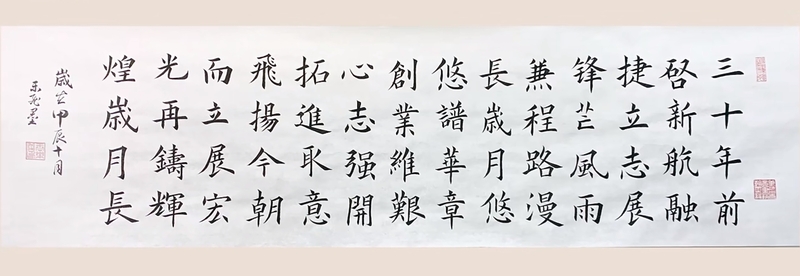 三十年前
啓新航融
捷立志展
鋒芒風雨
兼程路漫
長歲月悠
悠譜華章
創業維艱
心志强開
拓進取意
飛揚今朝
而立展宏
光再鑄輝
煌歲月長
歲在甲辰十月